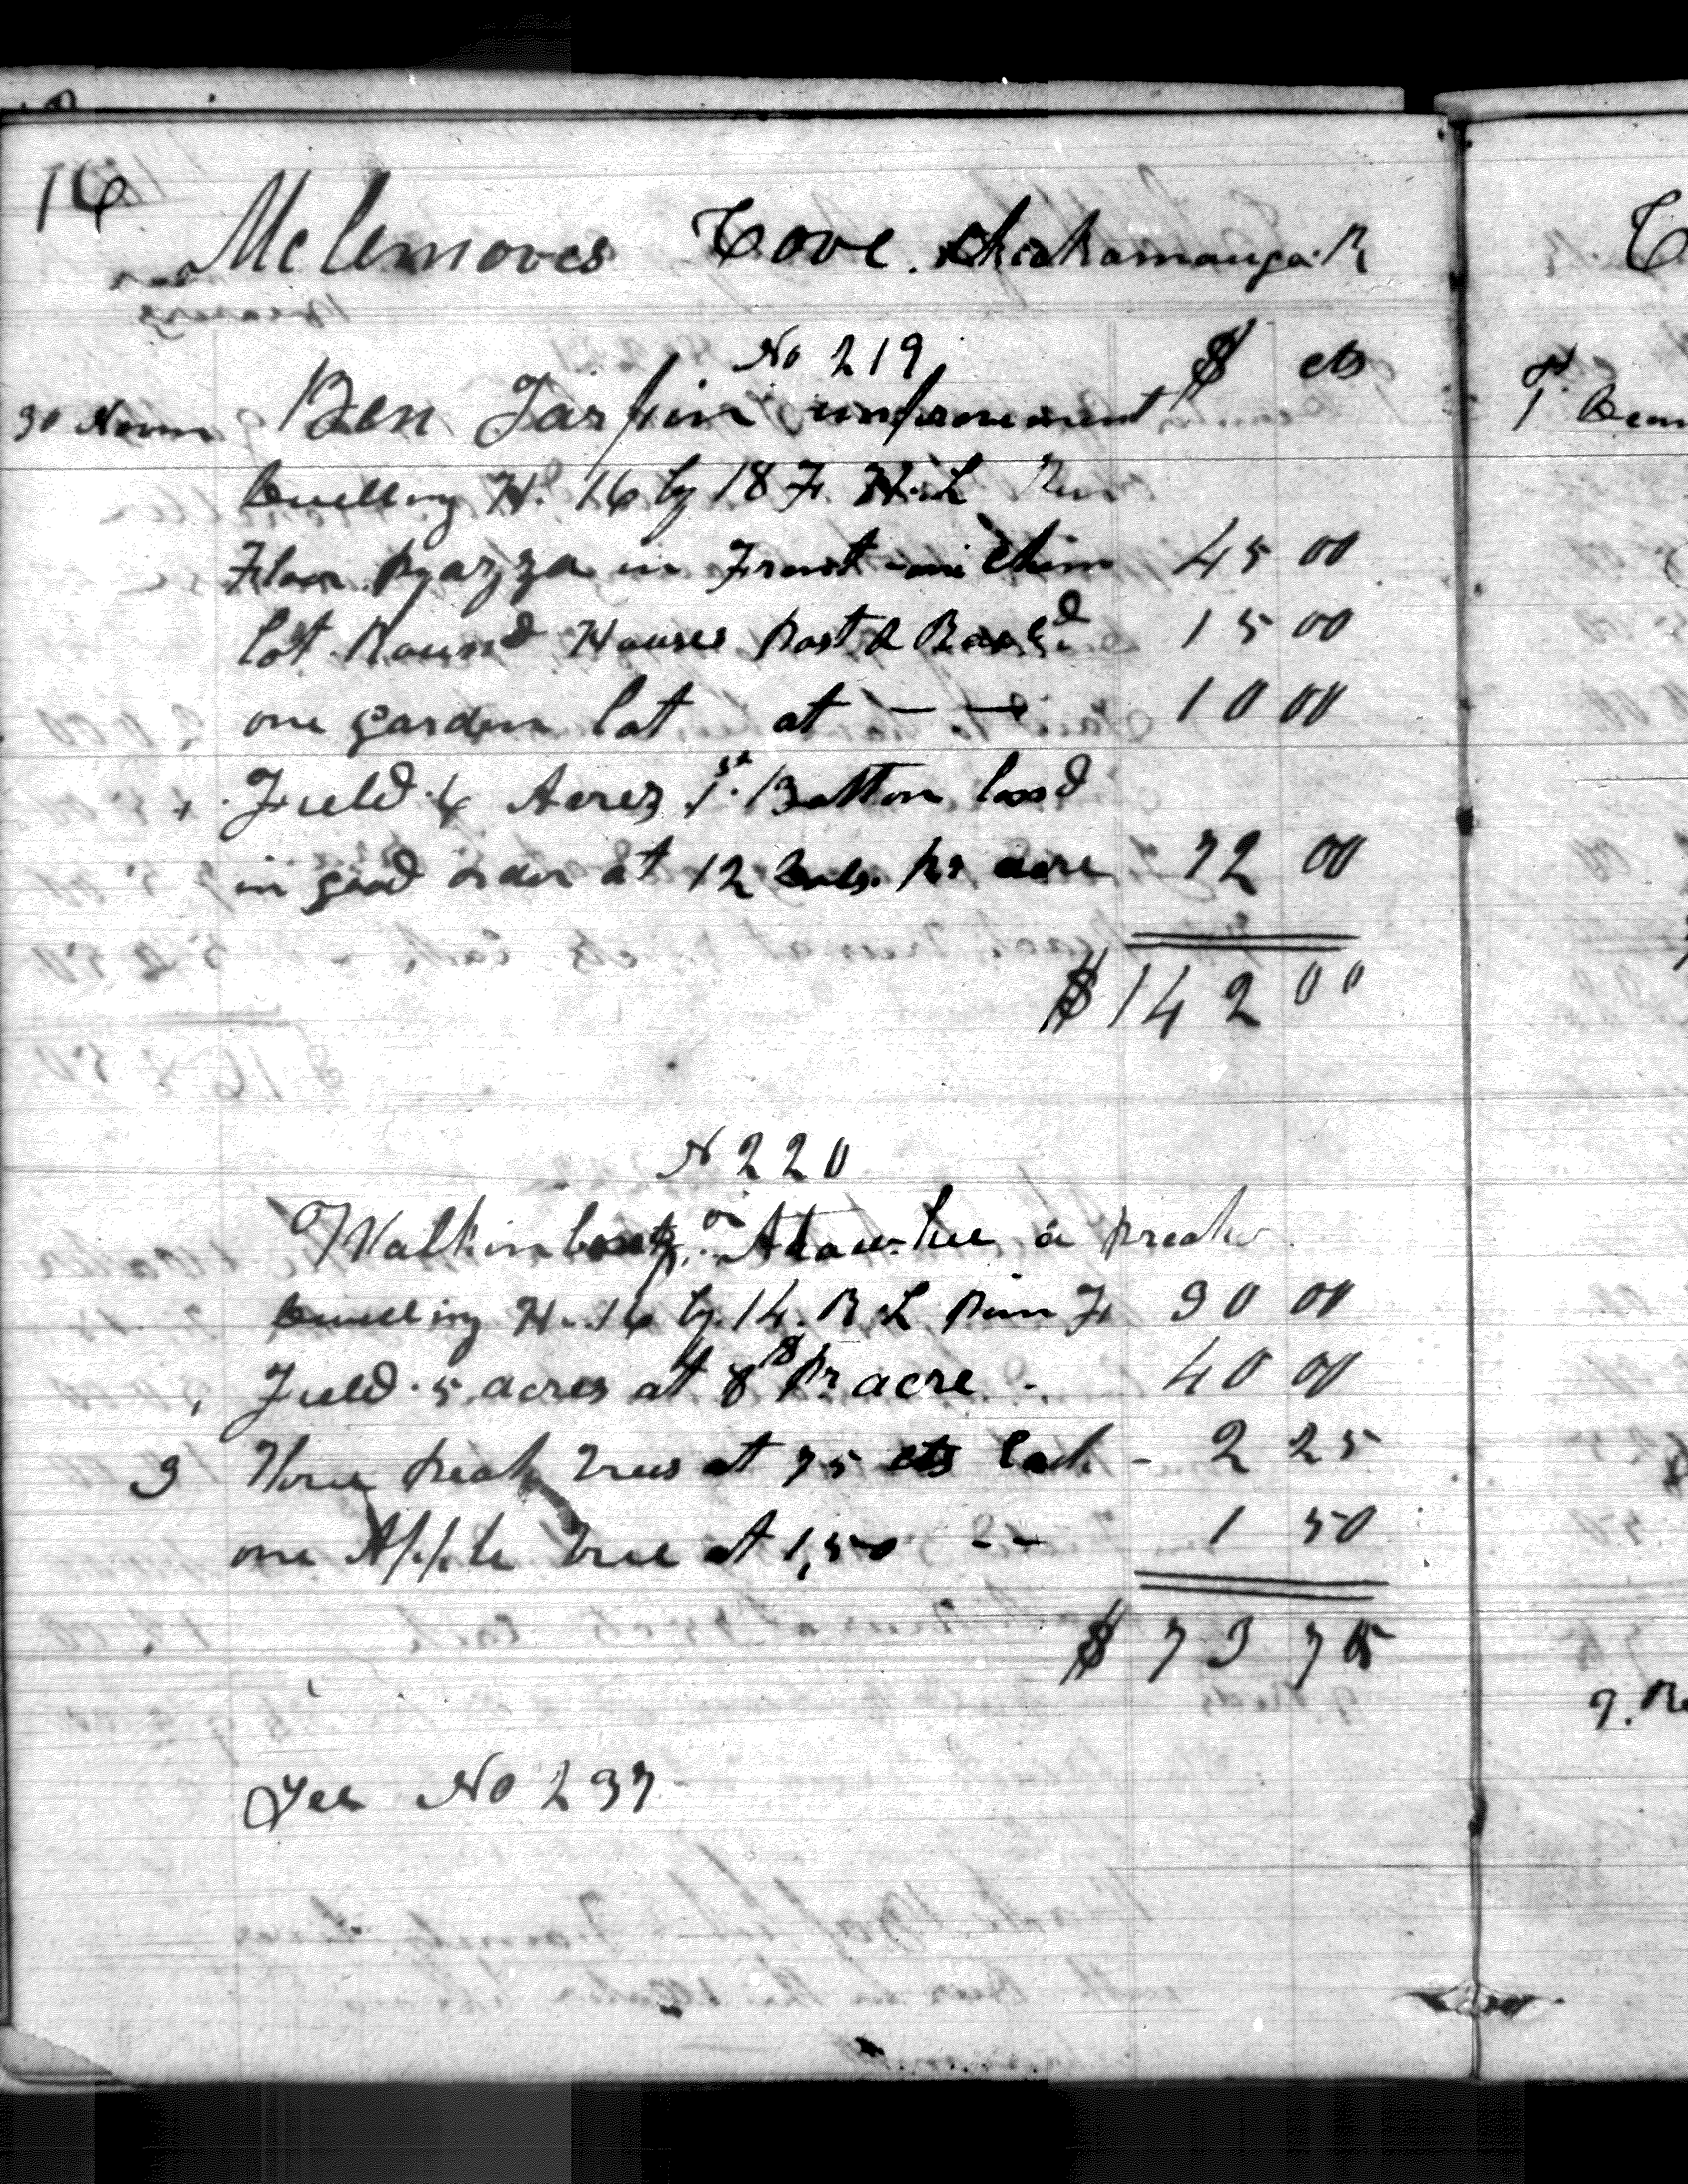 16
McLemores Cove. Chickamauga R
No 219 $ cts
30 Novm Ben Tarpin improvement
Dwelling H. 16 by 18 F. H. L Pun
Floor Pyazza in Front one Chim 45 00
lot Round Houses Post & 15 00
one garden lot at — — 10 00
Field 6 Acres 1st Bottom land
in good order at 12 pr acre 72 00
$ 142 00
N 220
or a
Dwelling H. 16 by 14. R L Pun F 30 00
Field 5 acres at 8$ pr acre - 40 00
3 Three peach trees at 75 cts Each - 2 25
one Apple tree at 1,50 -- 1 50
$ 73 75
See No 237